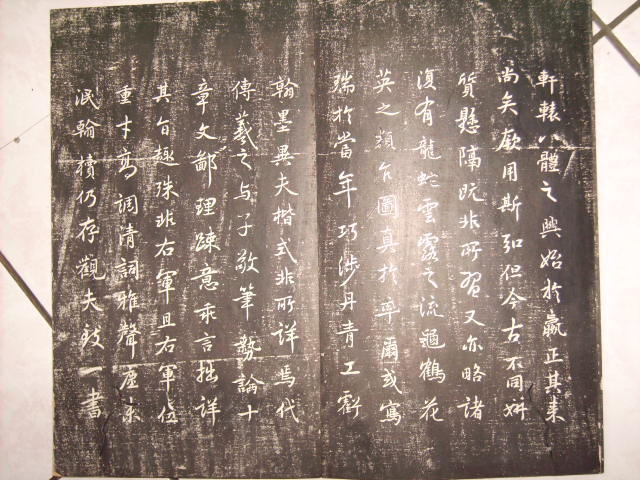 軒轅八體之興始於嬴正其来
尚矣厥用斯弘但今古不同妍
質懸隔既非所習又亦略諸
復有龍蛇雲露之流龜鶴花
英之類乍圖真於率爾或寫
瑞於當年巧涉丹青工虧
翰墨異夫楷式非所詳焉代
傳羲之与子敬筆勢論十
章文鄙理踈意乖言拙詳
其旨趣殊非右軍且右軍位
重才高調清詞雅聲塵未
泯翰櫝仍存觀夫致一書